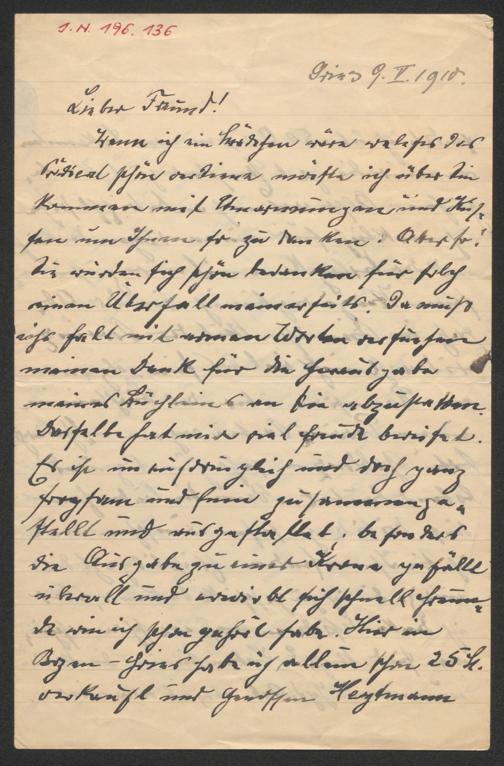 J.N. 196.136
Gries 9. II. 1910.
Lieber Freund!
Wenn ich ein Mädchen wäre welches das
Prädicat schön verdiene möchte ich über Sie
kommen mit Umarmungen und Küs-
sen um Ihnen so zu danken! Aber so!
Sie würden sich schön bedanken für solch
einen Überfall meinerseits. Da muß
ichs halt mit armen Worten versuchen
meinen Dank für die Herausgabe
meines Büchleins an Sie abzustatten.
Dasselbe hat mir viel Freude bereitet.
Es ist unaufdringlich und doch ganz
sorgsam und fein zusammenge-
stellt und ausgestattet. besonders
die Ausgabe zu einer Krone gefällt
überall und erwirbt sich schnell Freun-
de wie ich schon gehört habe. Hier in
Bozen-Gries habe ich allein schon 25 St.
verkauft und Heytmann